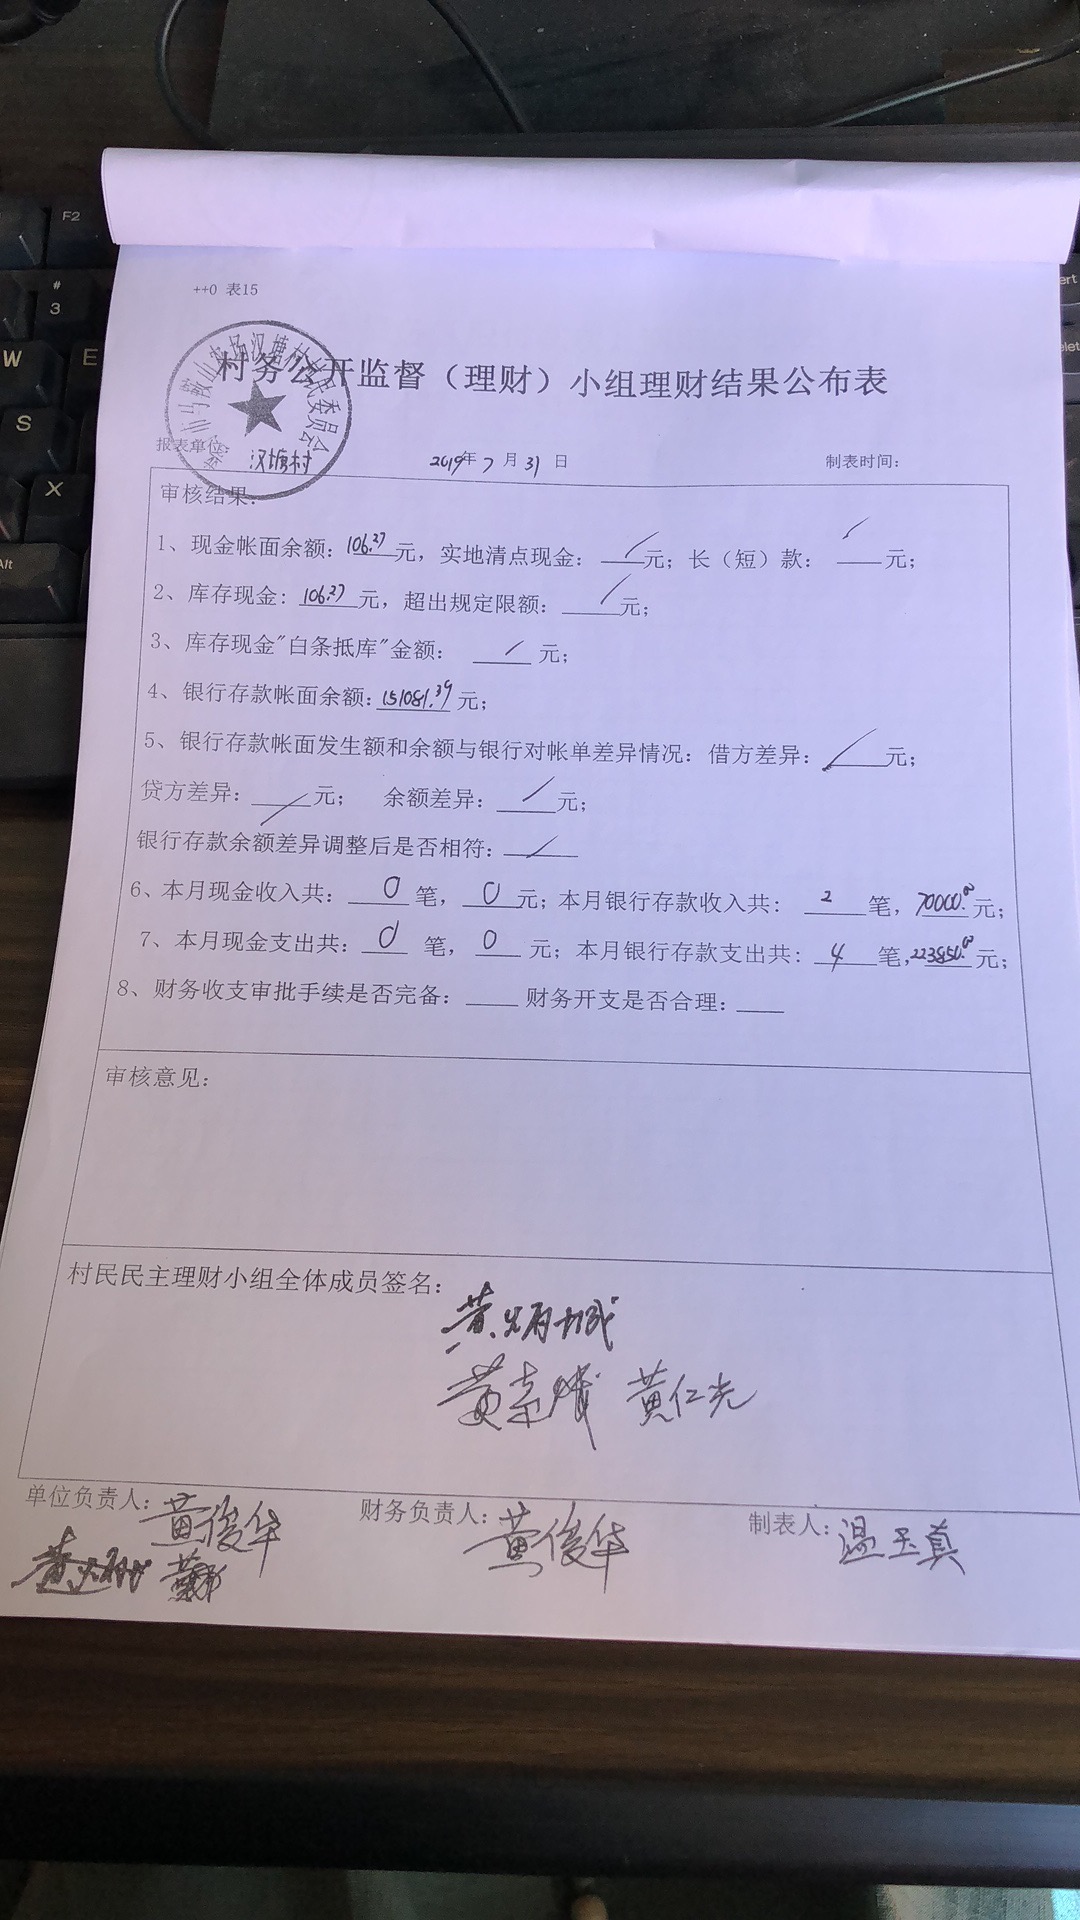 ++0 表15
村务公开监督（理财）小组理财结果公布表
马鞍山农场汉塘村村民委员会
报表单位: 汉塘村 2019年7月31日 制表时间:
审核结果:
1、现金帐面余额: 106.27元, 实地清点现金: /元; 长（短）款: /元;
2、库存现金: 106.27元, 超出规定限额: /元;
3、库存现金"白条抵库"金额: /元;
4、银行存款帐面余额: 151081.39元;
5、银行存款帐面发生额和余额与银行对帐单差异情况: 借方差异: /元;
贷方差异: /元; 余额差异: /元;
银行存款余额差异调整后是否相符: /
6、本月现金收入共: 0笔, 0元; 本月银行存款收入共: 2笔, 70000.00元;
7、本月现金支出共: 0笔, 0元; 本月银行存款支出共: 4笔, 223850.00元;
8、财务收支审批手续是否完备: ____ 财务开支是否合理: ____
审核意见:
村民民主理财小组全体成员签名:
黄炳城
黄仁光
单位负责人: 黄俊华 财务负责人: 黄俊华 制表人: 温玉真
F2
#
3
W
E
S
X
Alt